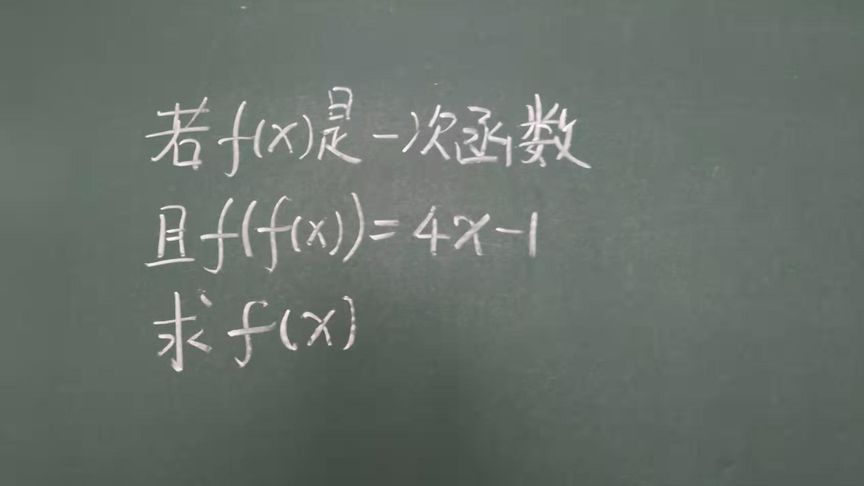 若f(x)是一次函数
且f(f(x))=4x-1
求f(x)